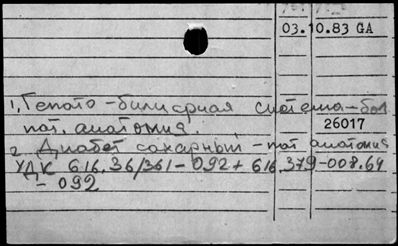 03.10.83 GA
1, Гепато-билиарная система-бол
пат. анатомия.
26017
2 Диабет сахарный-пат анатомия
УДК 616.36/361-092+616.379-008.64
-092